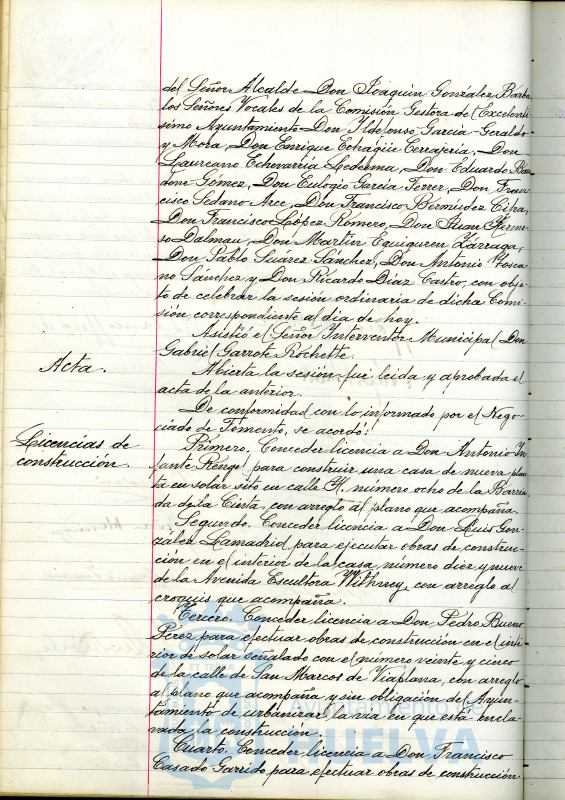 del Señor Alcalde Don Joaquín González Barba
los Señores Vocales de la Comisión Gestora del Excelentí-
simo Ayuntamiento Don Ildefonso García-Geraldo
y Mora, Don Enrique Echagüe Cerrajería, Don
Laureano Echevarría Ledesma, Don Eduardo Ba
Gómez, Don Eulogio García Ferrer, Don Fran-
cisco Sedano Arce, Don Francisco Bermúdez Cifra,
Don Francisco López Romero, Don Juan Hermo-
so Dalmau, Don Martín Eguiguren Zárraga,
Don Pablo Suárez Sánchez, Don Antonio Tosca-
no Sánchez y Don Ricardo Díaz Castro, con obje-
to de celebrar la sesión ordinaria de dicha Comi-
sión correspondiente al día de hoy.
Asistió el Señor Interventor Municipal Don
Gabriel Garrote Rochette.
Acta.
Abierta la sesión fue leída y aprobada el
acta de la anterior.
De conformidad con lo informado por el Nego-
ciado de Fomento, se acordó:
Licencias de
construcción.
Primero. Conceder licencia a Don Antonio In-
fante Rengel para construir una casa de nueva plan-
ta en solar sito en calle H. número ocho de la Barria-
da de la Cinta, con arreglo al plano que acompaña.
Segundo. Conceder licencia a Don Luis Gon-
zález Lamadrid para ejecutar obras de construc-
ción en el interior de la casa número diez y nueve
de la Avenida Escultora Withney, con arreglo al
croquis que acompaña.
Tercero. Conceder licencia a Don Pedro Bueno
Pérez para efectuar obras de construcción en el inte-
rior de solar señalado con el número veinte y cinco
de la calle de San Marcos de Viaplana, con arreglo
al plano que acompaña y sin obligación del Ayun-
tamiento de urbanizar la vía en que está encla-
vada la construcción.
Cuarto. Conceder licencia a Don Francisco
Casado Garrido para efectuar obras de construcción
Ayuntamiento de
HUELVA